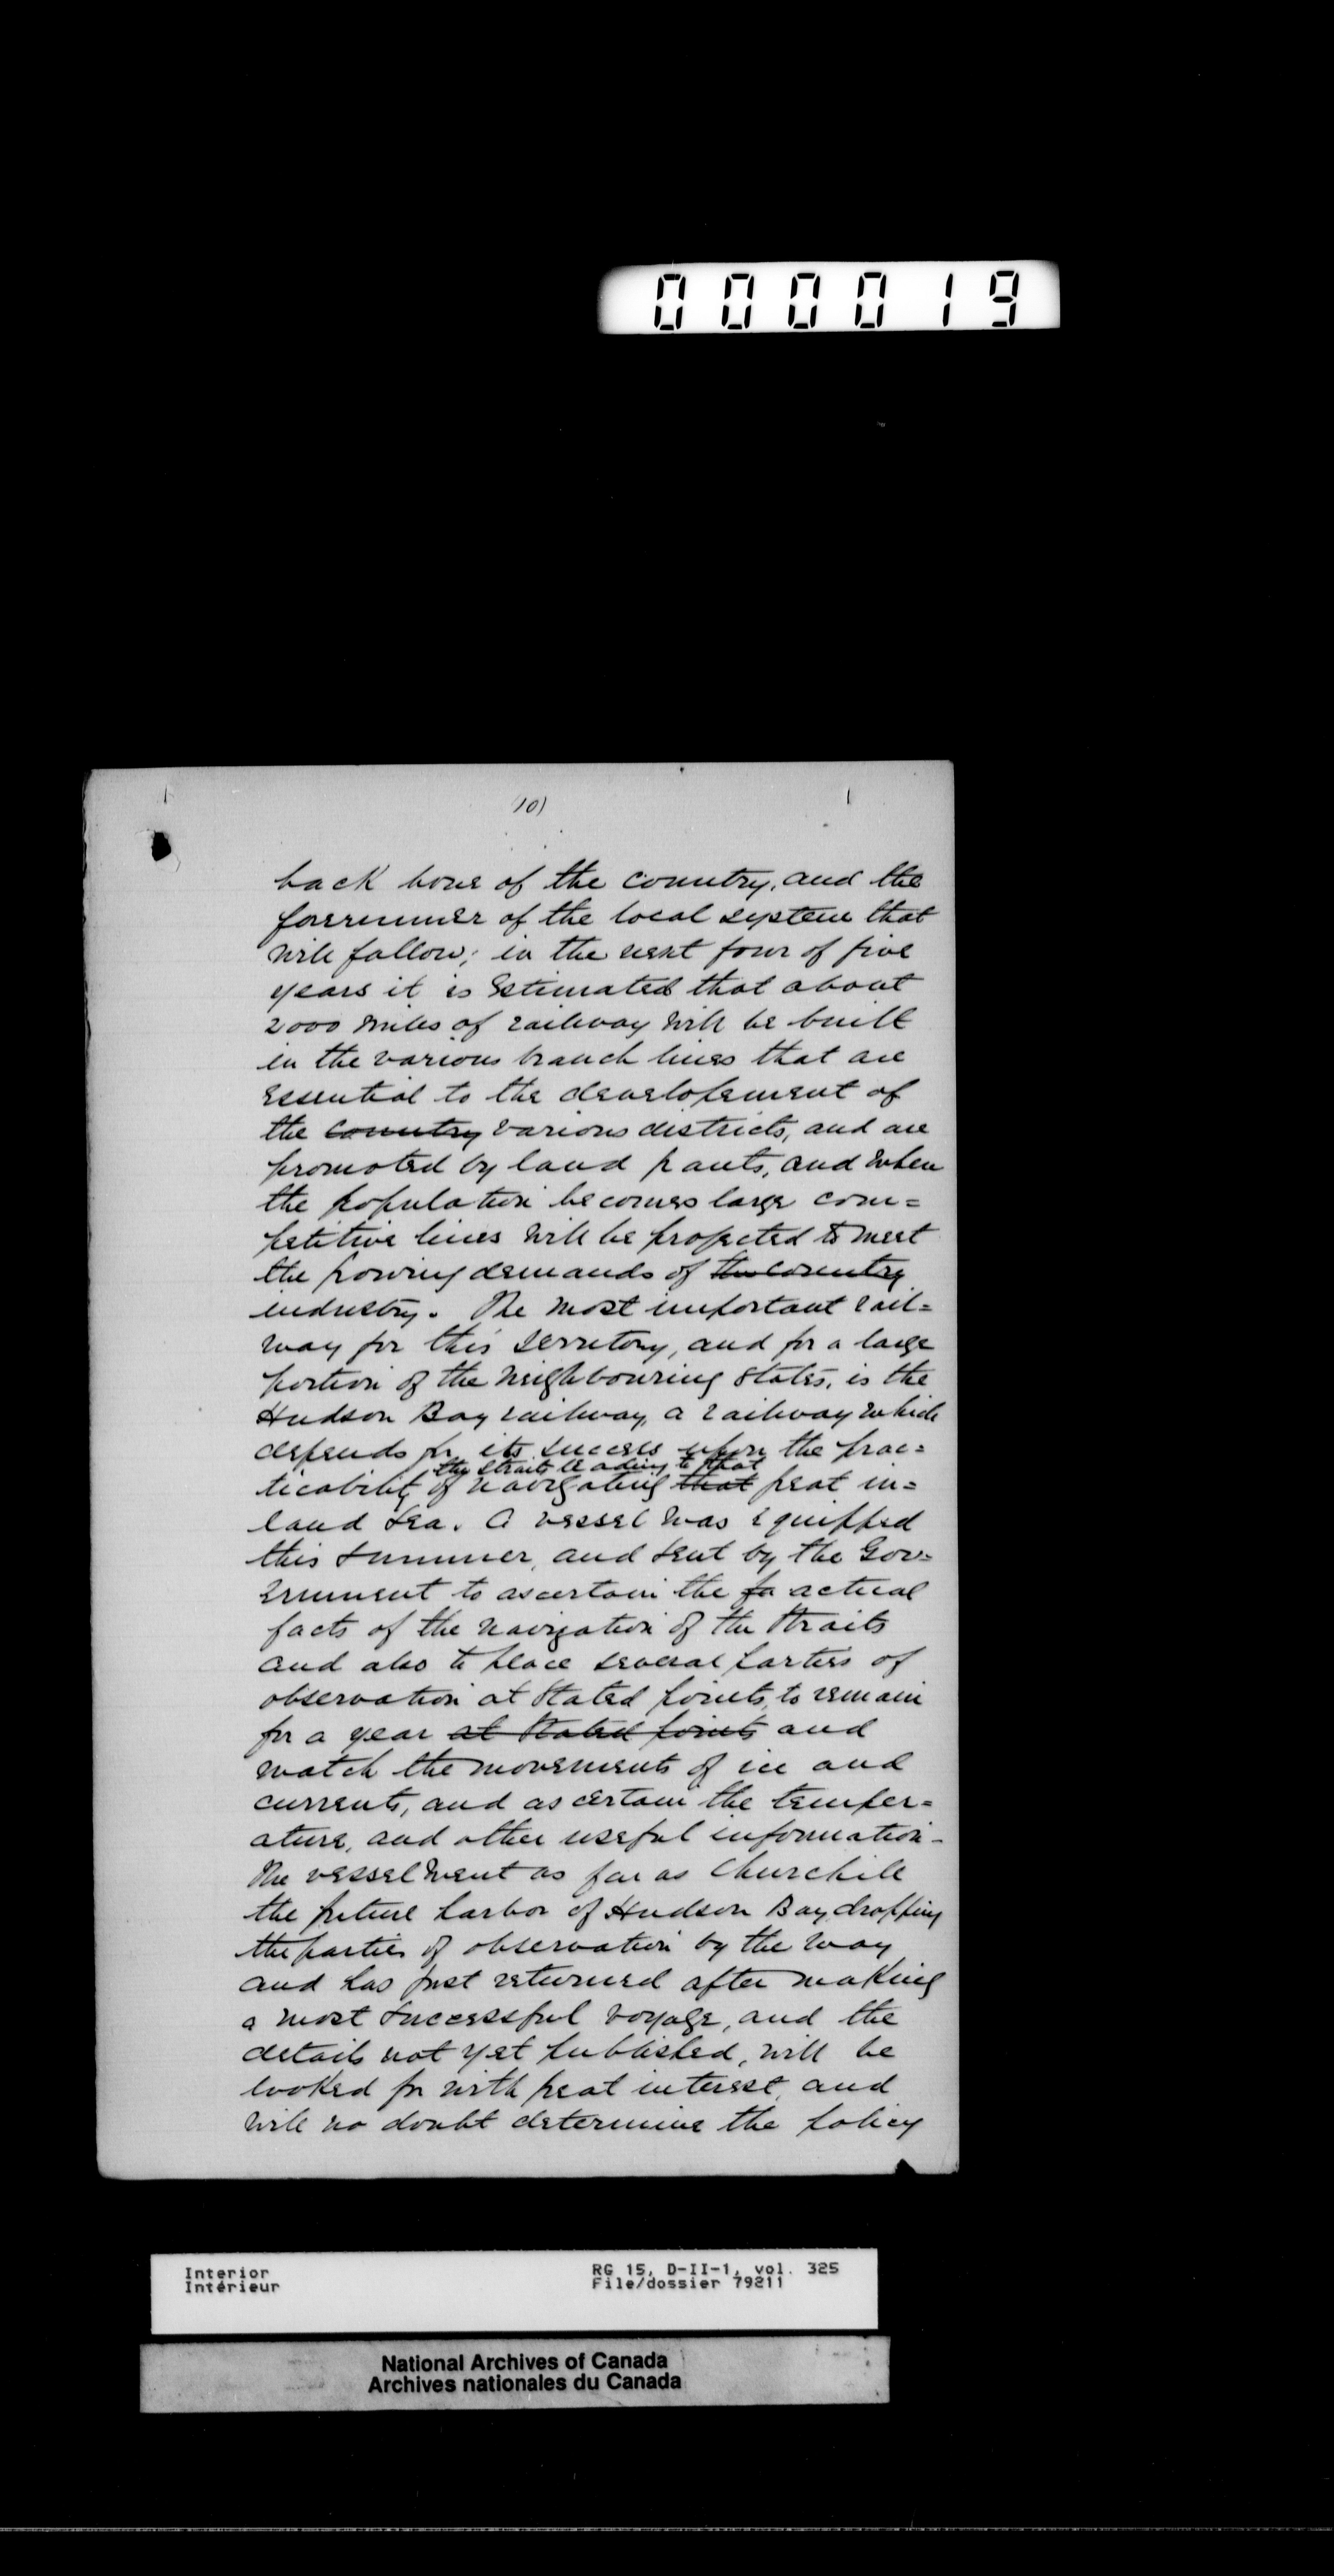 000019
10)
back bone of the country, and the
forerunner of the local system that
will follow; in the next four of five
years it is estimated that about
2000 miles of railway will be built
in the various branch lines that are
essential to the developement of
the country various districts, and are
promoted by land grants, and when
the population becomes large com=
petitive lines will be projected to meet
the growing demands of the country
industry. The most important rail=
way for this territory, and for a large
portion of the neighbouring states, is the
Hudson Bay railway, a railway which
depends for its success upon the prac=
the straits leading to that
ticability of navigating that great in=
land sea. A vessel was equipped
this summer, and sent by the Gov=
ernment to ascertain the fa actual
facts of the navigation of the straits
and also to place several parties of
observation at stated points, to remain
for a year at stated points and
watch the movements of ice and
currents, and ascertain the temper=
ature, and other useful information -
The vessel went as far as Churchill
the future harbor of Hudson Bay, dropping
the parties of observation by the way
and has just returned after making
a most successful voyage, and the
details not yet published, will be
looked for with great interest, and
will no doubt determine the policy
Interior RG 15, D-II-1, vol. 325
Intérieur File/dossier 79211
National Archives of Canada
Archives nationales du Canada